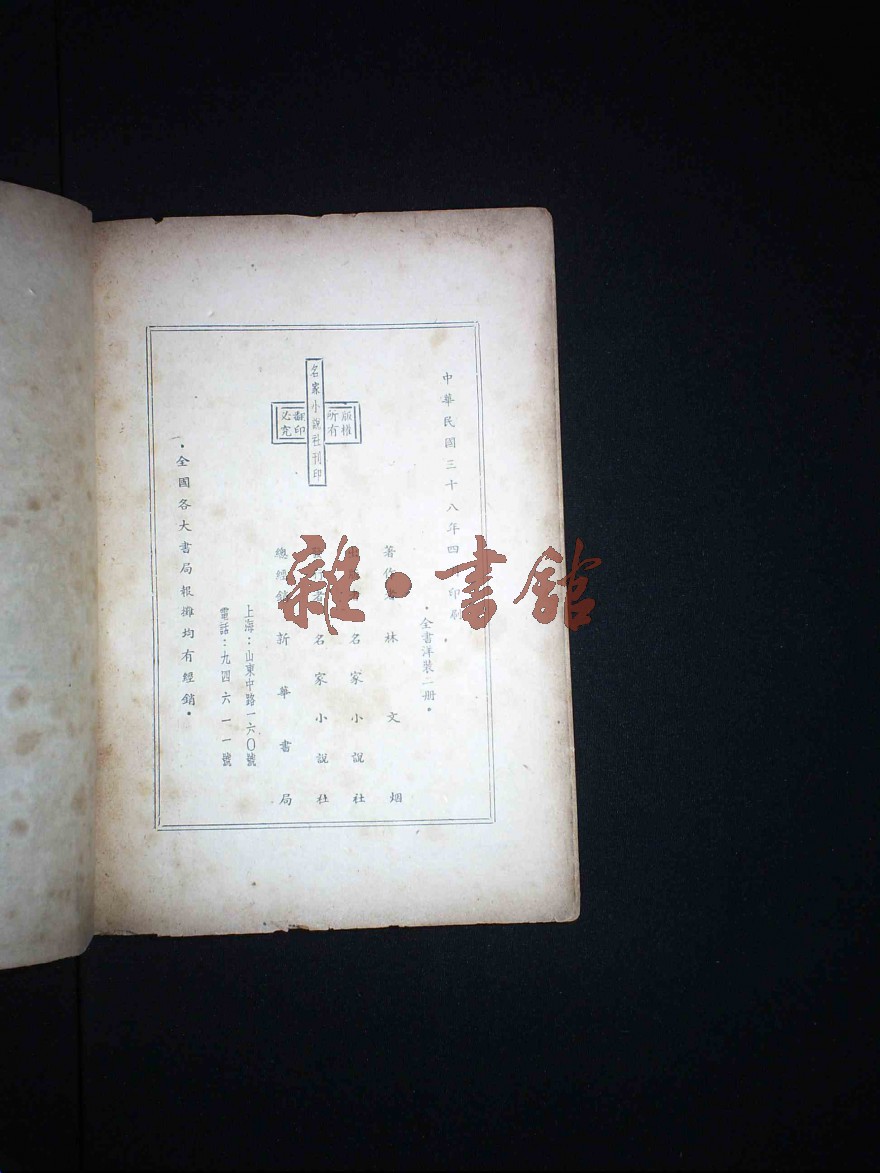 中華民國三十八年四月印刷
•全書洋裝二冊•
著作者 林文烟
出版者 名家小說社
發行者 名家小說社
總經銷 新華書局
上海：山東中路一六〇號
電話：九四六一一號
•全國各大書局報攤均有經銷•
名家小說社刊印
版權所有
翻印必究
雜•書館